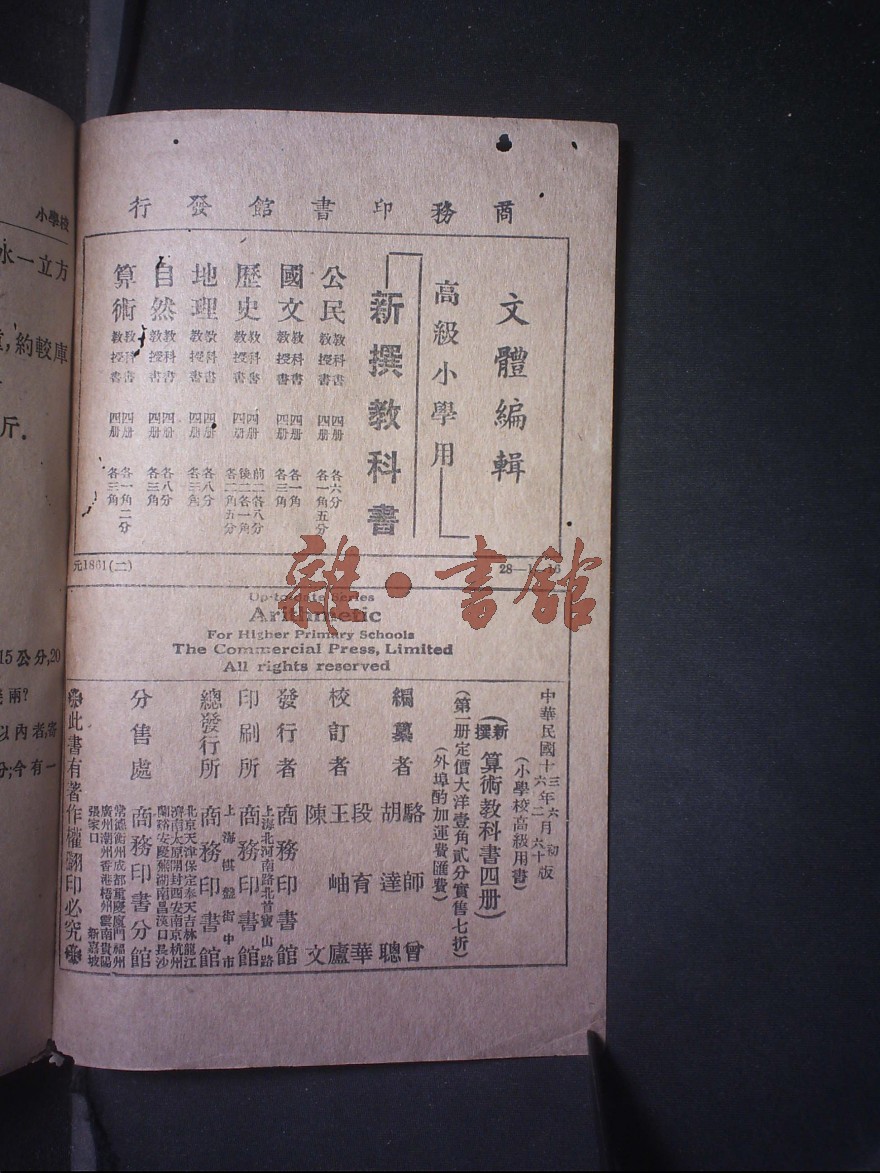 商務印書館發行
文體編輯
高級小學用
新撰教科書
公民 教科書 四册 各六分
教授書 四册 各一角五分
國文 教科書 四册 各一角
教授書 四册 各三角
歷史 教科書 四册 前二各八分 後二各一角
教授書 四册 各二角五分
地理 教科書 四册 各八分
教授書 四册 各三角
自然 教科書 四册 各八分
教授書 四册 各三角
算術 教科書 四册 各一角二分
教授書 四册 各三角
元1861(二)
Up-to-date Series
Arithmetic
For Higher Primary Schools
The Commercial Press, Limited
All rights reserved
中華民國十三年六月初版
十六年二月六十版
(小學校高級用書)
(新撰)算術教科書四册
(第一册定價大洋壹角貳分實售七折)
(外埠酌加運費匯費)
編纂者 駱師曾 胡達聰
校訂者 段育華 王岫廬 陳文
發行者 商務印書館
上海北河南路北首寶山路
印刷所 商務印書館
上海棋盤街中市
總發行所 商務印書館
北京天津保定奉天吉林龍江
濟南太原開封西安南京杭州
蘭谿安慶蕪湖南昌漢口長沙
分售處 商務印書分館
常德衡州成都重慶廈門福州
廣州潮州香港梧州雲南貴陽
張家口 新嘉坡
此書有著作權翻印必究
小學校
水一立方
約較庫
斤.
15公分,20
兩?
以內者,寄
分;今有一
雜·書館